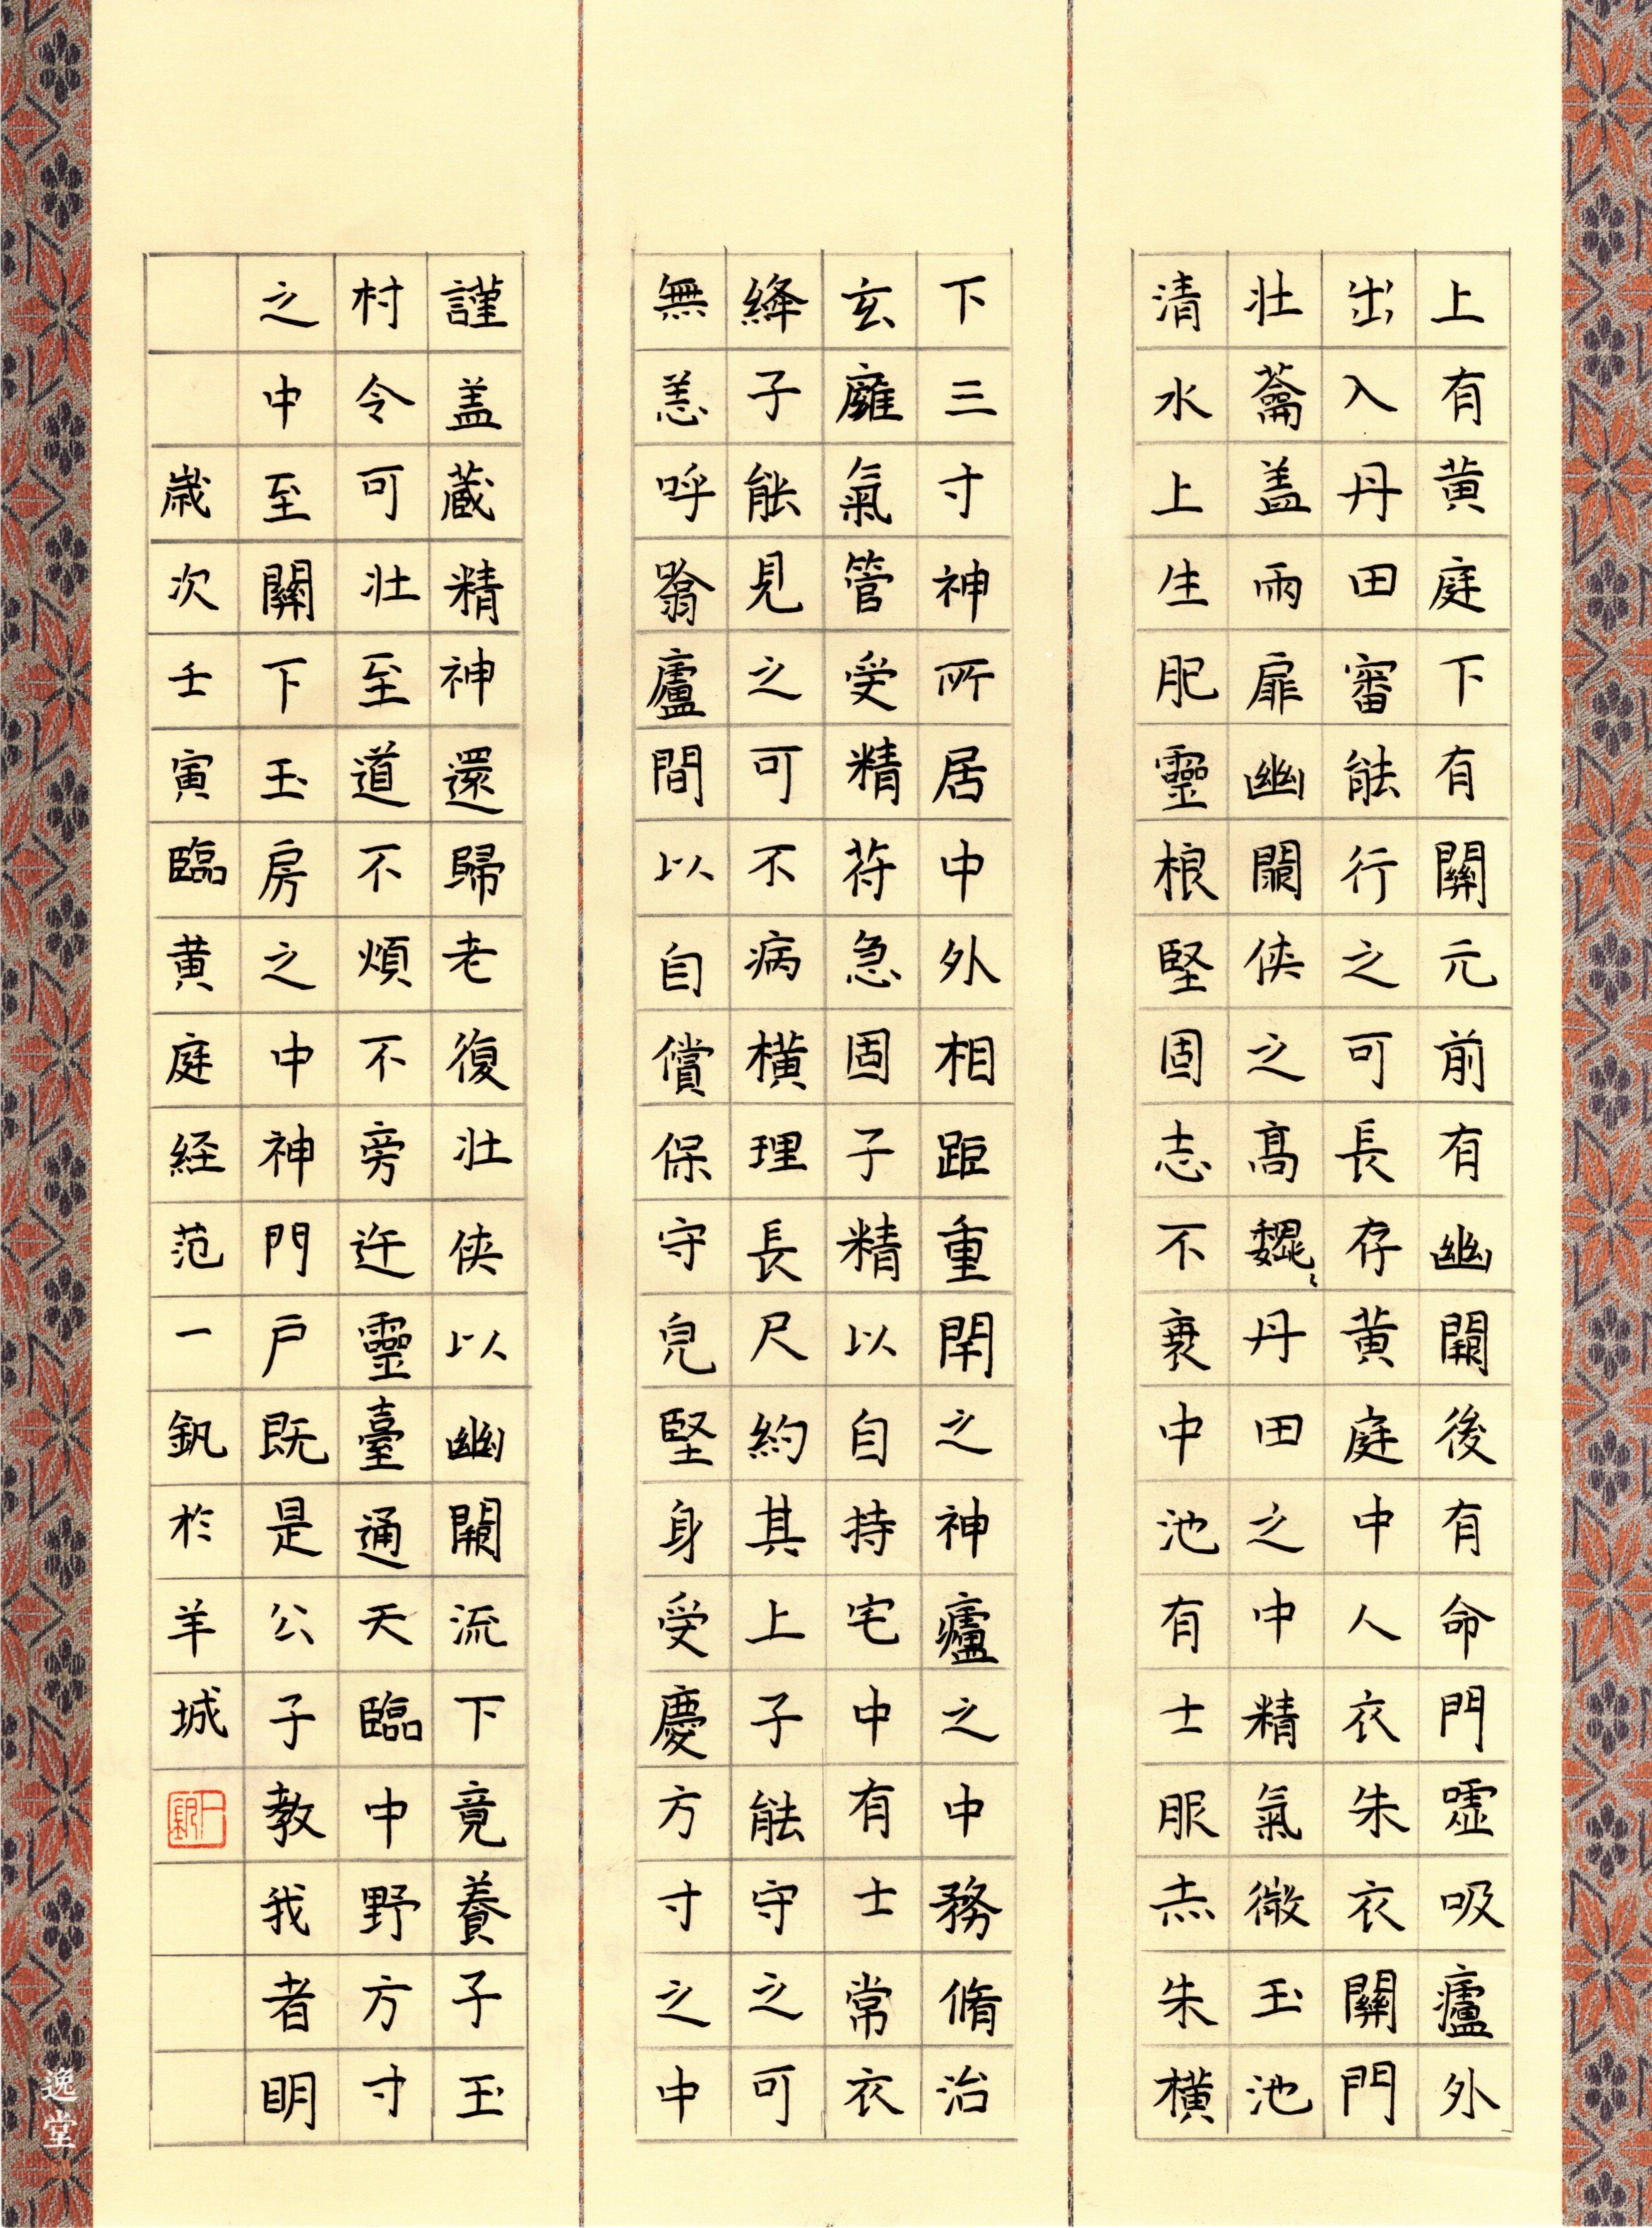 上有黄庭下有關元前有幽闕後有命門噓吸廬外
出入丹田審能行之可長存黄庭中人衣朱衣關門
壮蘥盖兩扉幽闕侠之高巍〻丹田之中精氣微玉池
清水上生肥靈根堅固志不衰中池有士服赤朱橫
下三寸神所居中外相距重閇之神廬之中務脩治
玄廱氣管受精苻急固子精以自持宅中有士常衣
絳子能見之可不病橫理長尺約其上子能守之可
無恙呼噏廬間以自償保守皃堅身受慶方寸之中
謹盖蔵精神還歸老復壮侠以幽闕流下竟養子玉
村令可壮至道不煩不旁迕靈臺通天臨中野方寸
之中至關下玉房之中神門戶既是公子教我者明
歳次壬寅臨黄庭経范一釩於羊城
逸堂